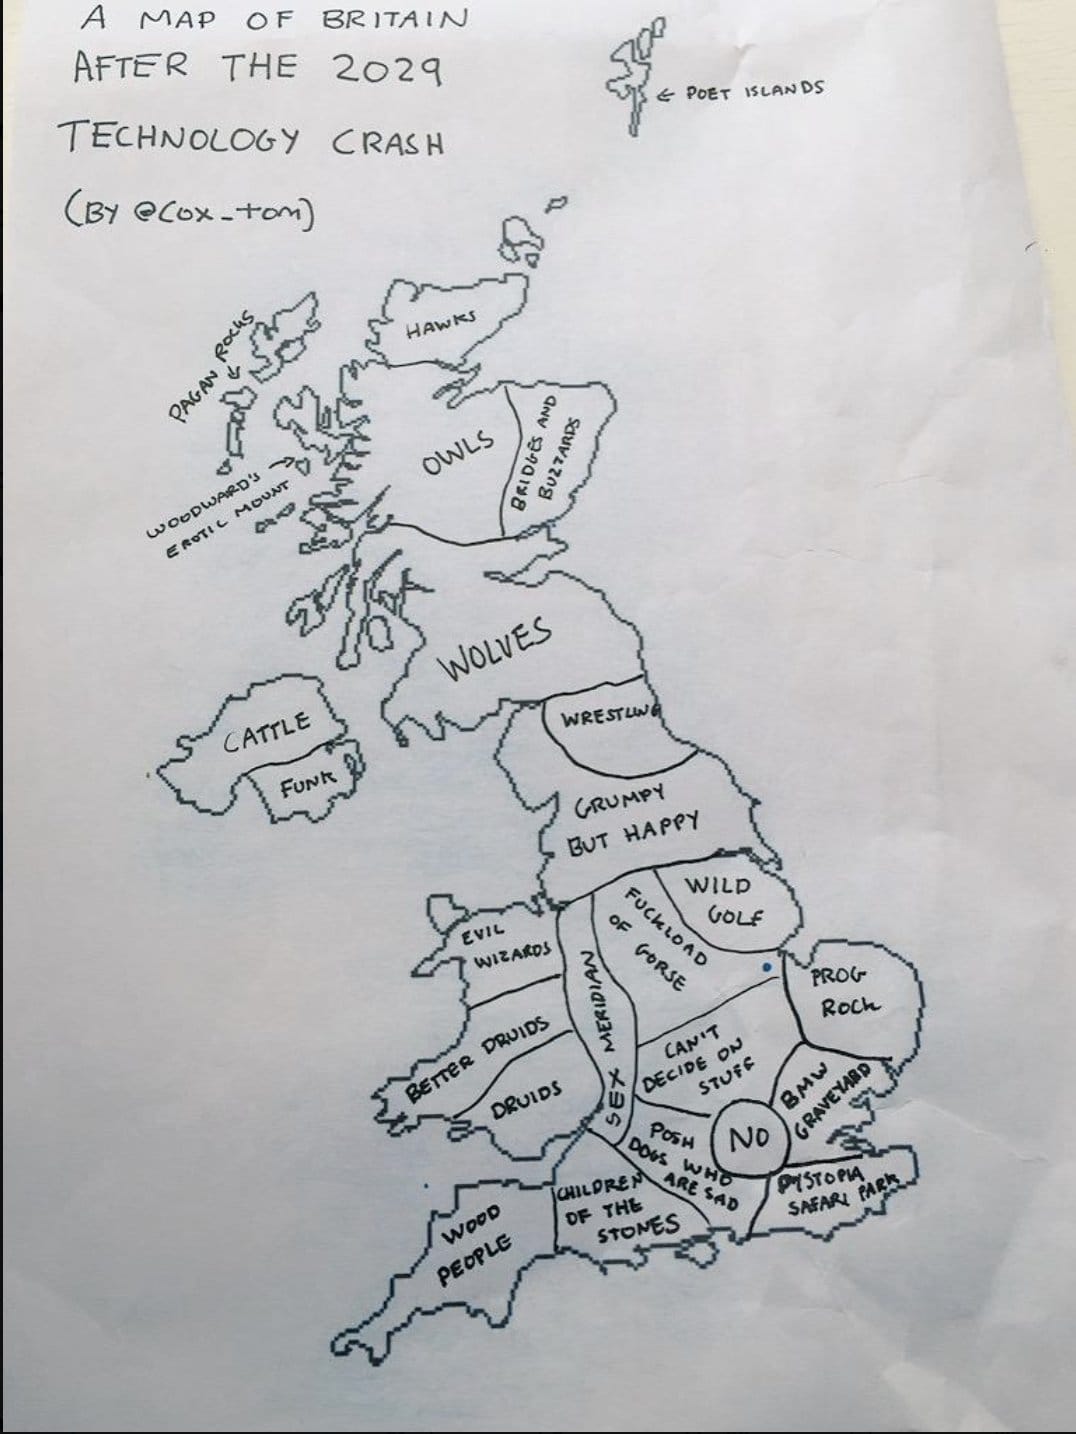 A MAP OF BRITAIN
AFTER THE 2029
TECHNOLOGY CRASH
(BY @COX_TOM)
← POET ISLANDS
HAWKS
PAGAN ROCKS
OWLS
BRIDGES AND
BUZZARDS
WOODWARD'S
EROTIC MOUNT
WOLVES
CATTLE
FUNK
WRESTLING
GRUMPY
BUT HAPPY
WILD
GOLF
FUCKLOAD
OF GORSE
EVIL
WIZARDS
SEX MERIDIAN
PROG
ROCK
BETTER DRUIDS
CAN'T
DECIDE ON
STUFF
BMW
GRAVEYARD
DRUIDS
NO
POSH
DOGS WHO
ARE SAD
DYSTOPIA
SAFARI PARK
CHILDREN
OF THE
STONES
WOOD
PEOPLE